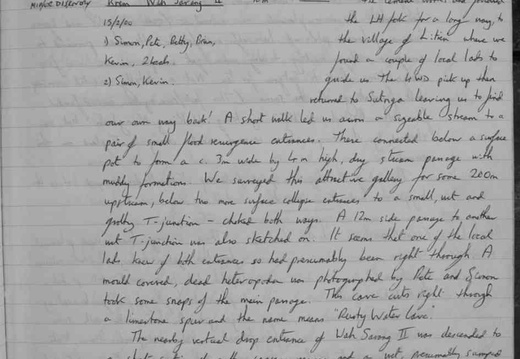 Minor Discovery Krem Wah Sarang II
15/2/00 the LH fork for a long way, to
1) Simon, Pete, Betty, Brian, the village of Litien where we
Kevin, 2 locals. found a couple of local lads to
2) Simon, Kevin. guide us. The 4WD pick up then
returned to Sutnga leaving us to find
our own way back! A short walk led us across a sizeable stream to a
pair of small flood resurgence entrances. These connected below a surface
pot to form a c. 3m wide by 4m high, dry stream passage with
muddy formation. We surveyed this attractive gallery for some 200m
upstream, below two more surface collapse entrances to a small, wet and
grotty T-junction - choked both ways. A 12m side passage to another
wet T-junction was also sketched on. It seems that one of the local
lads knew of both entrances so had presumably been right through. A
mould covered, dead heteropoda was photographed by Pete and Simon
took some snaps of the main passage. This cave cuts right through
a limestone spur and the name means "Rusty Water Cave."
The nearby vertical drop entrance of Wah Sarang II was descended to